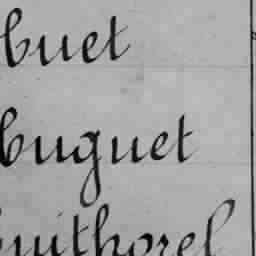 Huet
Huguet
Huithorel